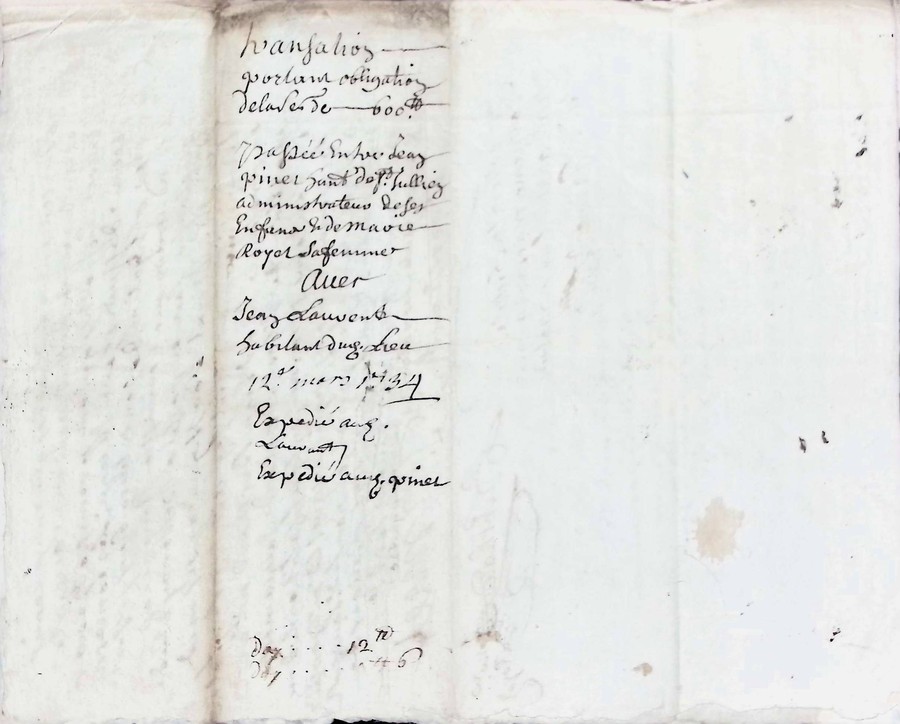 transation
portant obligation
de la so de 600 ₶
passée Entre Jean
pinet habt de St Jullien
administrateur de ses
Enfans & de marie
Royet sa femme
Avec
Jean Laurent
habitant dud. Lieu
12e mars 1734
Expedié aud.
Laurant
Expedié aud. pinet
12 ₶
6